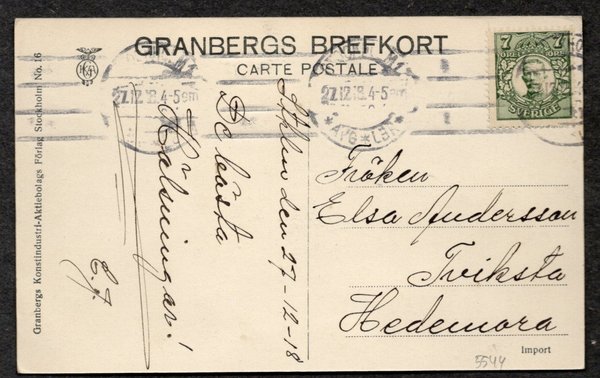 GRANBERGS BREFKORT
CARTE POSTALE
7 7
ÖRE ÖRE
SVERIGE
27.12.18.4-5em
27.12.18.4-5em
AVG★LBR
Sthlm den 27-12-18
De bästa
Hälsningar!
E.J.
Fröken
Elsa Andersson
Tviksta
Hedemora
Import
5544
Granbergs Konstindustri-Aktiebolags Förlag Stockholm No. 16